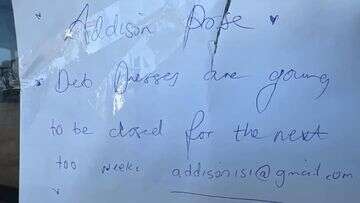 Addison Rose
Deb Dresses are going
to be closed for the next
too weeks addison151@gmail.com